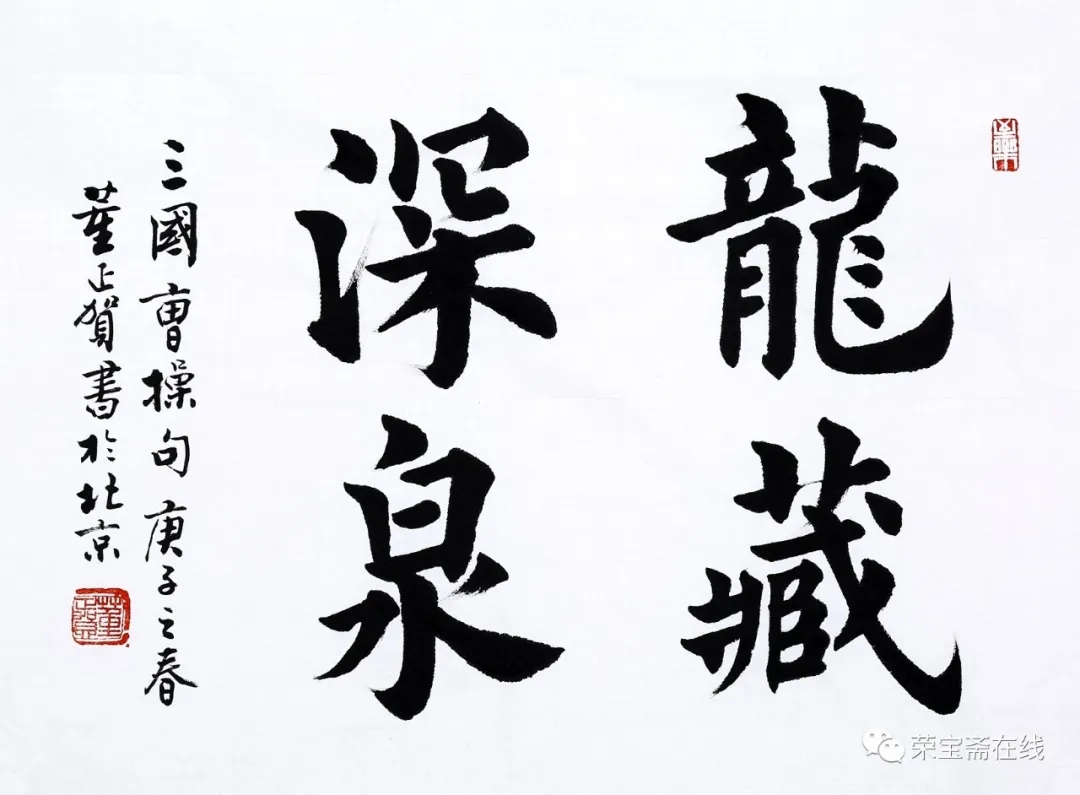 龍藏
深泉
三國曹操句庚子之春
董正賀書於北京
荣宝斋在线